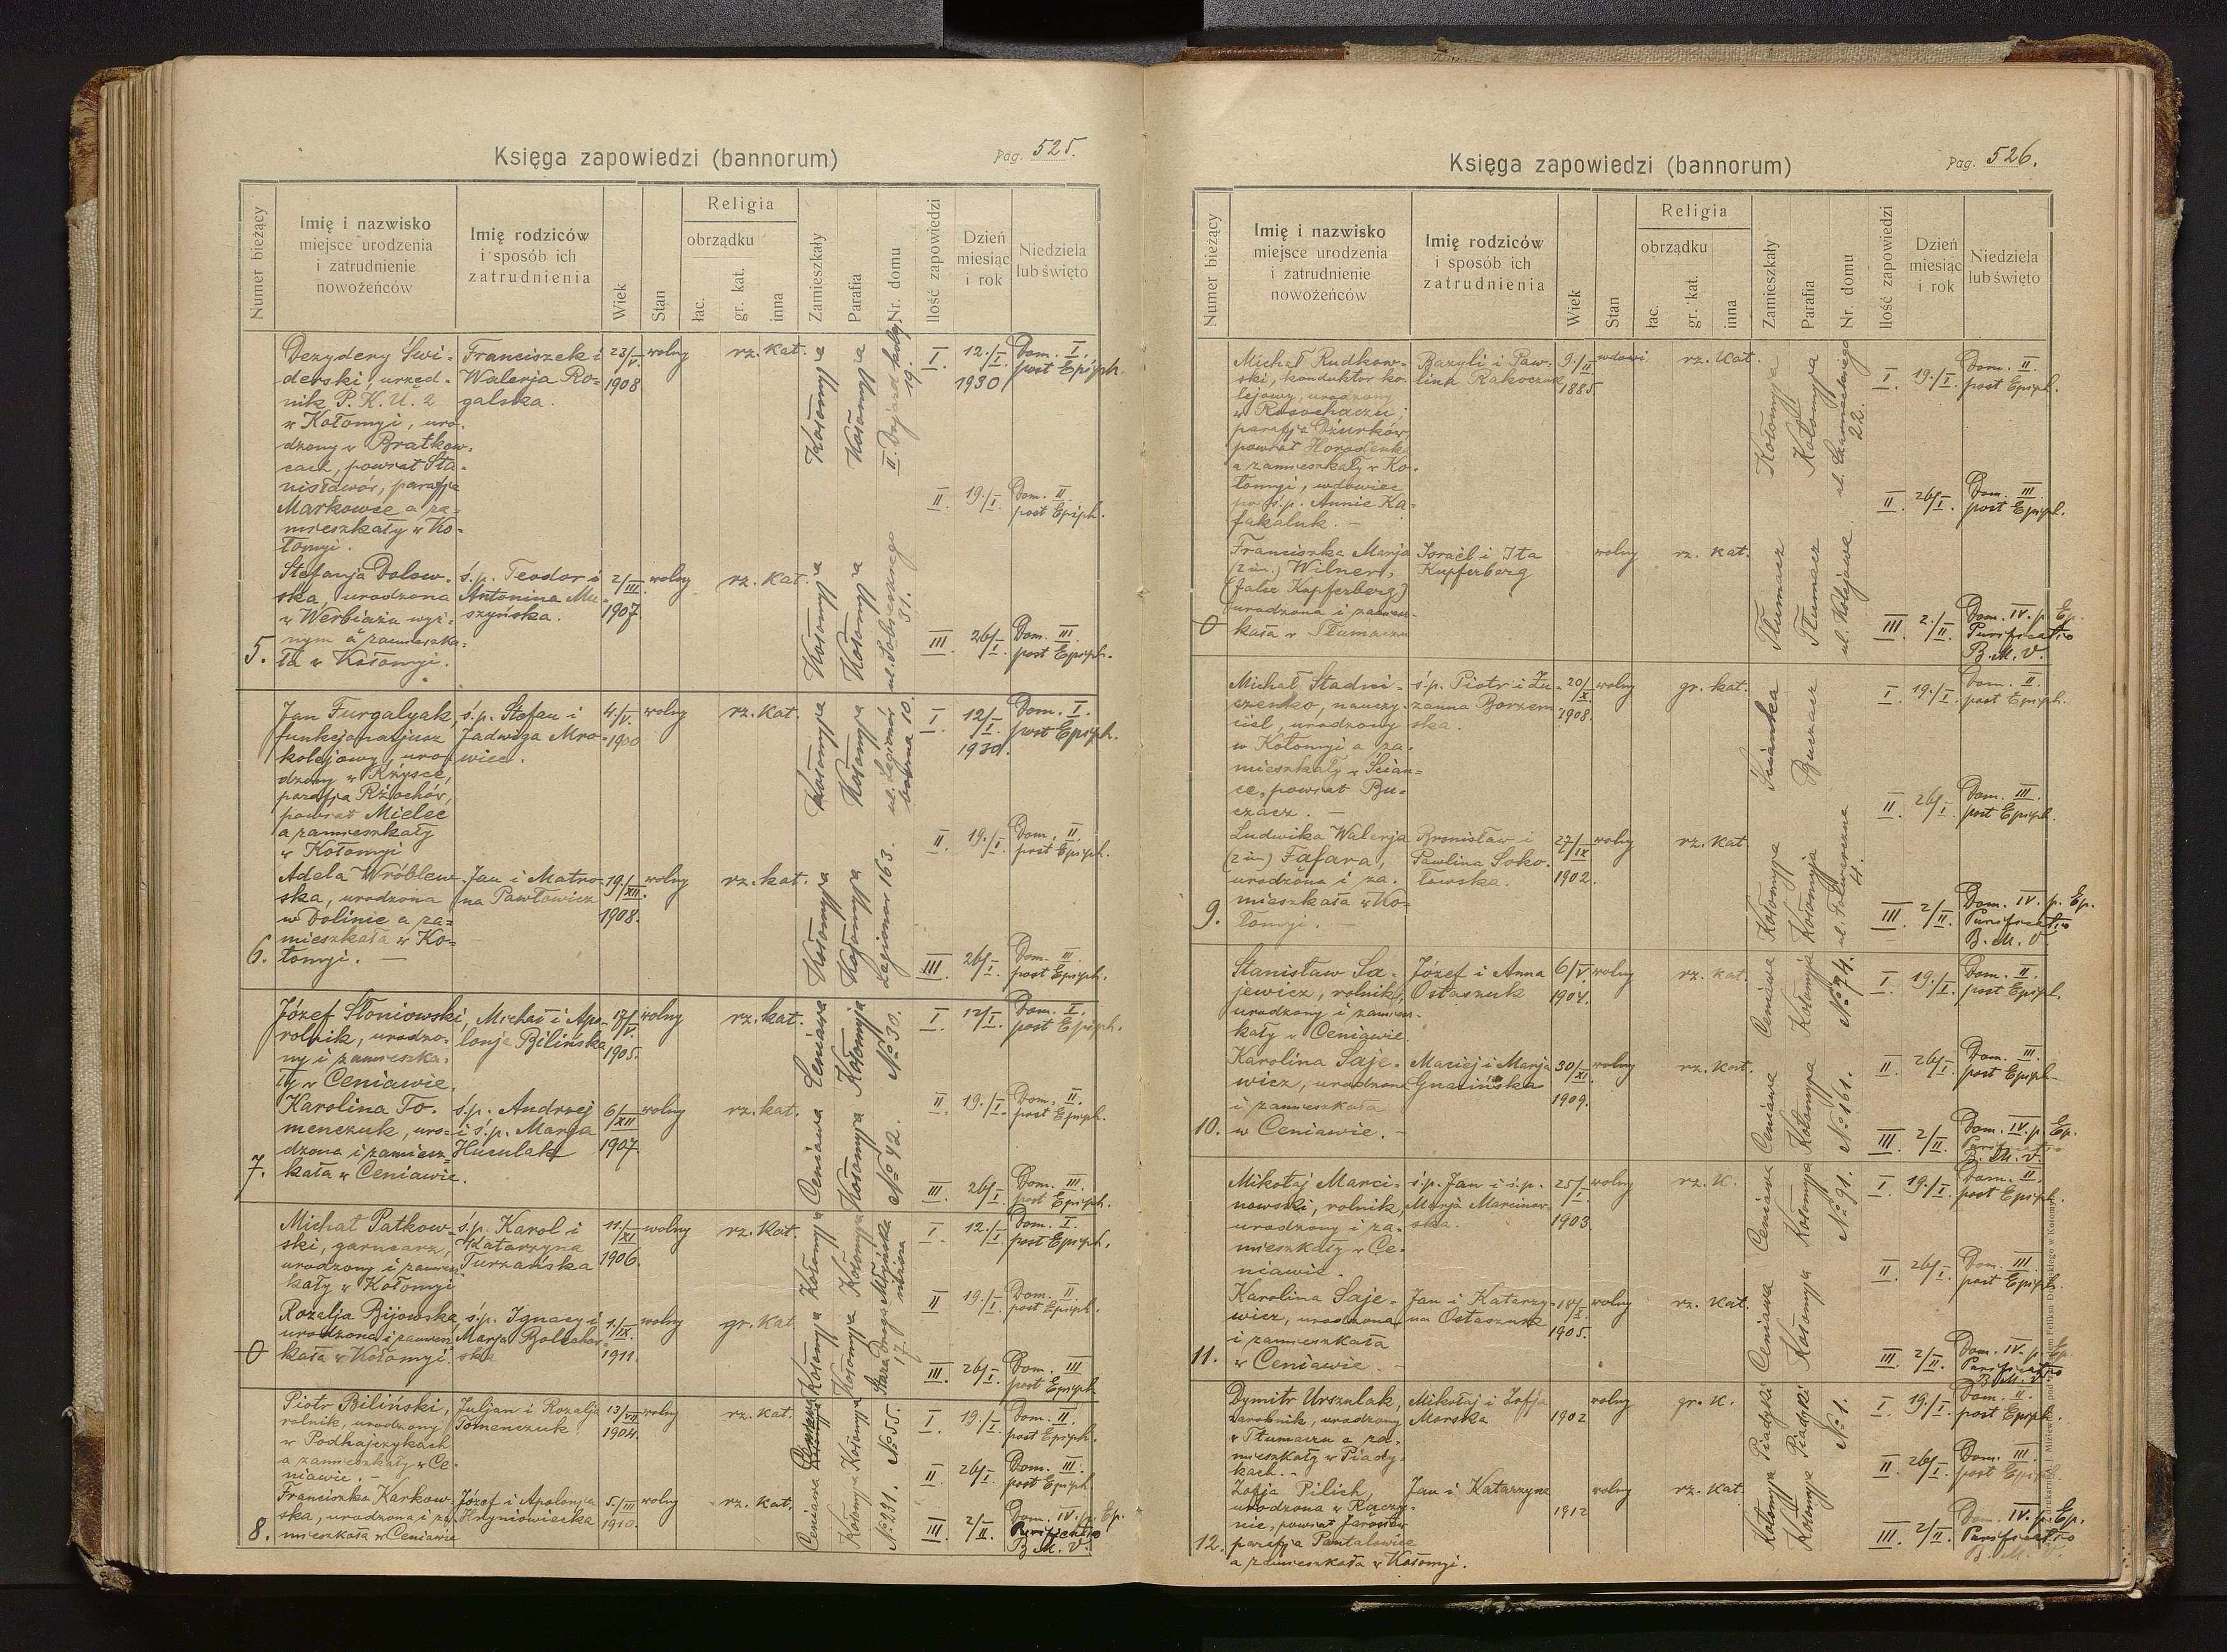 Księga zapowiedzi (bannorum)
Pag. 525.
Numer bieżący
Imię i nazwisko
miejsce urodzenia
i zatrudnienie
nowożeńców
Imię rodziców
i sposób ich
zatrudnienia
Wiek
Stan
Religia
obrządku
łac.
gr. kat.
inna
Zamieszkały
Parafia
Nr. domu
Ilość zapowiedzi
Dzień
miesiąc
i rok
Niedziela
lub święto
5.
Dezydery Świ-
derski, urzęd-
nik P. K. U. 2
w Kołomyi, uro-
dzony w Bratkow-
cach, powiat Sta-
nisławów, parafja
Markowce a za-
mieszkały w Ko-
łomyi.
Franciszek i
Walerja Ro-
galska.
23/V. 1908
wolny
rz. kat.
Kołomyja
Kołomyja
19.
I. 12./I. 1930 Dom. I. post Epiph.
II. 19./I. Dom. II. post Epiph.
Stefanja Dolow-
ska, urodzona
w Werbiążu wyż-
nym a zamieszka-
ła w Kołomyi.
ś.p. Teodor i
Antonina Mu-
szyńska.
2/III. 1907
wolny
rz. kat.
Kołomyja
Kołomyja
ul. Sobieskiego
31.
III. 26/I. Dom. III. post Epiph.
6.
Jan Furgalyak,
funkcjonarjusz
kolejowy, uro-
dzony w Rżysce,
parafja Rżochów,
powiat Mielec
a zamieszkały
w Kołomyi
ś.p. Stefan i
Jadwiga Mro-
wiec.
4/V. 1900
wolny
rz. kat.
Kołomyja
Kołomyja
ul. Legionów
boczna 10.
I. 12/I. 1930. Dom. I. post Epiph.
II. 19./I. Dom. II. post Epiph.
Adela Wróblew-
ska, urodzona
w Dolinie a za-
mieszkała w Ko-
łomyi. —
Jan i Matro-
na Pawłowicz
19./XII. 1908.
wolny
rz. kat.
Kołomyja
Kołomyja
Legionów 163.
III. 26/I. Dom. III. post Epiph.
7.
Józef Słoniowski,
rolnik, urodzo-
ny i zamieszka-
ły w Ceniawie.
Michał i Apo-
lonja Bilińska
17/V. 1905.
wolny
rz. kat.
Ceniawa
Kołomyja
No 30.
I. 12/I. Dom. I. post Epiph.
II. 19./I. Dom. II. post Epiph.
Karolina To-
menczuk, uro-
dzona i zamiesz-
kała w Ceniawie.
ś.p. Andrzej
i ś.p. Marja
Huculak
6/XII 1907
wolny
rz. kat.
Ceniawa
Kołomyja
No 42.
III. 26/I. Dom. III. post Epiph.
0
Michał Patkow-
ski, garncarz,
urodzony i zamiesz-
kały w Kołomyi
ś.p. Karol i
Katarzyna
Turzańska
11./XI 1906.
wolny
rz. kat.
Kołomyja
Kołomyja
I. 12./I. Dom. I. post Epiph.
II 19./I. Dom. II. post Epiph.
Rozalja Bijowska,
urodzona i zamiesz-
kała w Kołomyi.
ś.p. Ignacy i
1./IX. 1911.
wolny
gr. kat
Kołomyja
Kołomyja
Stara Droga
17.
III. 26/I. Dom. III post Epiph.
8.
Piotr Biliński,
rolnik, urodzony
w Podhajczykach
a zamieszkały w Ce-
niawie. —
Juljan i Rozalja
Tomenczuk.
13/VII 1904.
wolny
rz. kat.
Kołomyja
No 55.
I. 19./I. Dom. II. post Epiph.
II. 26/I. Dom. III. post Epiph.
Franciszka Karkow-
ska, urodzona i za-
mieszkała w Ceniawie
Józef i Apolonja
Hryniowiecka
5/III 1910.
wolny
rz. kat.
Ceniawa
Kołomyja
No 231.
III. 2/II. Dom. IV. p. Ep.
Purificatio
B. M. V.
Księga zapowiedzi (bannorum)
Pag. 526.
Numer bieżący
Imię i nazwisko
miejsce urodzenia
i zatrudnienie
nowożeńców
Imię rodziców
i sposób ich
zatrudnienia
Wiek
Stan
Religia
obrządku
łac.
gr. kat.
inna
Zamieszkały
Parafia
Nr. domu
Ilość zapowiedzi
Dzień
miesiąc
i rok
Niedziela
lub święto
0
Michał Rudkow-
ski, konduktor ko-
lejowy, urodzony
w Rosochaczu,
parafja Dżurków,
powiat Horodenka
a zamieszkały w Ko-
łomyi, wdowiec
po ś.p. Annie Ka-
fakaluk. —
Bazyli i Paw-
lina Rakoczuk
9/II 1885.
rz. kat.
Kołomyja
Kołomyja
22.
I. 19./I. Dom. II. post Epiph.
II. 26/I. Dom. III. post Epiph.
Franciszka Marja
(2 im.) Wilner,
(false Kupferberg)
urodzona i zamiesz-
kała w Tłumaczu
Israël i Ita
Kupferberg
wolny
rz. kat.
Tłumacz
Tłumacz
ul. Kolejowa
III. 2./II. Dom. IV. p. Ep.
Purificatio
B. M. V.
9.
Michał Stadni-
czenko, nauczy-
ciel, urodzony
w Kołomyi a za-
mieszkały w Ścian-
ce, powiat Bu-
czacz. —
ś.p. Piotr i Zu-
zanna Borzem-
ska.
20/X. 1908.
wolny
gr. kat.
Ścianka
Buczacz
I. 19./I. Dom. II. post Epiph.
II. 26/I. Dom. III. post Epiph.
Ludwika Walerja
(2 im) Fafara,
urodzona i za-
mieszkała w Ko-
łomyi. —
Bronisław i
Pawlina Soko-
łowska.
27/IX 1902.
wolny
rz. kat.
Kołomyja
Kołomyja
ul. Folwarczna
4.
III. 2/II. Dom. IV. p. Ep.
Purificatio
B. M. V.
10.
Stanisław Sa-
jewicz, rolnik,
urodzony i zamiesz-
kały w Ceniawie.
Józef i Anna
Ostaszuk
6/V. 1904.
wolny
rz. kat.
Ceniawa
Kołomyja
No 74.
I. 19./I. Dom. II. post Epiph.
II. 26/I. Dom. III. post Epiph.
Karolina Saje-
wicz, urodzona
i zamieszkała
w Ceniawie. —
Maciej i Marja
Gnazińska
30/XI. 1909.
wolny
rz. kat.
Ceniawa
Kołomyja
No 161.
III. 2/II. Dom. IV. p. Ep.
Purificatio
B. M. V.
11.
Mikołaj Marci-
nowski, rolnik,
urodzony i za-
mieszkały w Ce-
niawie.
ś.p. Jan i ś.p.
Marja Marcinow-
ska.
25/I. 1903.
wolny
rz. k.
Ceniawa
Kołomyja
No 91.
I. 19./I. Dom. II. post Epiph.
II. 26/I. Dom. III. post Epiph.
Karolina Saje-
wicz, urodzona
i zamieszkała
w Ceniawie. —
Jan i Katarzy-
na Ostaszuk
1905.
wolny
rz. kat.
Ceniawa
Kołomyja
III. 2/II. Dom. IV. p. Ep.
Purificatio
B. M. V.
12.
Dymitr Urszulak,
zarobnik, urodzony
w Tłumaczu a za-
mieszkały w Piady-
kach. —
Mikołaj i Zofja
Morska
1902
wolny
gr. k.
Piadyki
Piadyki
No 1.
I. 19./I. Dom. II. post Epiph.
II. 26/I. Dom. III. post Epiph.
Zofja Pilich,
urodzona w Raczy-
nie, powiat Jarosław
parafja Pantalowice
a zamieszkała w Kołomyi.
Jan i Katarzyna
1912
wolny
rz. kat.
Kołomyja
Kołomyja
III. 2/II. Dom. IV. p. Ep.
Purificatio
B. M. V.